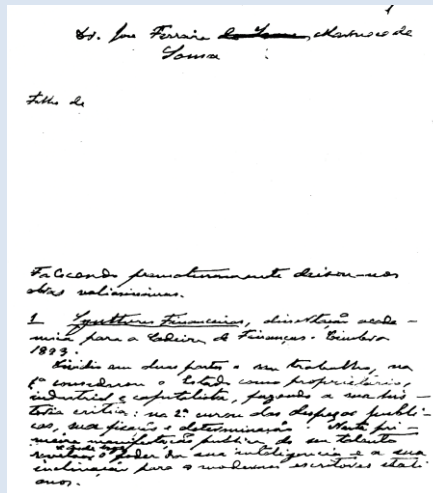 1
Dr. José Ferreira Marnoco de
Sousa
Filho de
Fallecendo prematuramente deixou-nos
obras valiosissimas.
1 Syntheses Financeiras, dissertação acade-
mica para a Cadeira de Finanças. Coimbra
1893.
Dividiu em duas partes o seu trabalho, na
1ª considerou o Estado como proprietario,
industrial e capitalista, fazendo a sua his-
toria critica: na 2ª das despezas publi-
cas, sua e determinação. Nesta pri-
meira manifestação publica do seu talento
revelou o poder da sua intelligencia e a sua
inclinação para os modernos escritores itali-
anos.